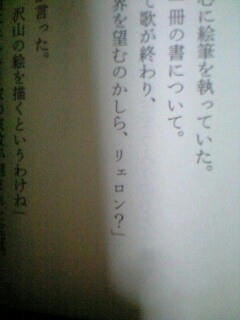 心に絵筆を執っていた。
一冊の書について。
て歌が終わり、
界を望むのかしら、リェロン？」
言った。
沢山の絵を描くというわけね」